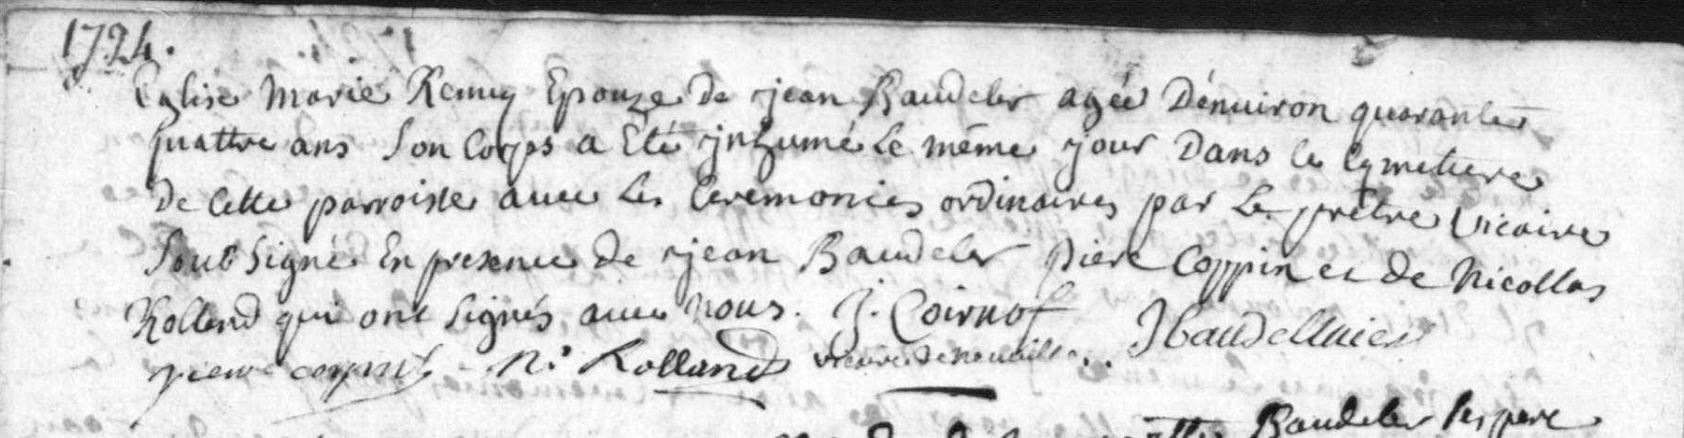 1724.
Eglise Marie Remy Epouze de jean Baudelet agée Dénuiron quarante
quattre ans son Corps a Eté jnhumé Le même jour Dans le Cymetiere
de Cette parroisse auec les Ceremonies ordinaires par le prêtre Vicaire
Soub signé En presence de jean Baudelet Piere Coppin et de Nicollas
Rolland qui ont signés auec nous. J. Coirnot
N. Rolland vicaire de
Baudelet